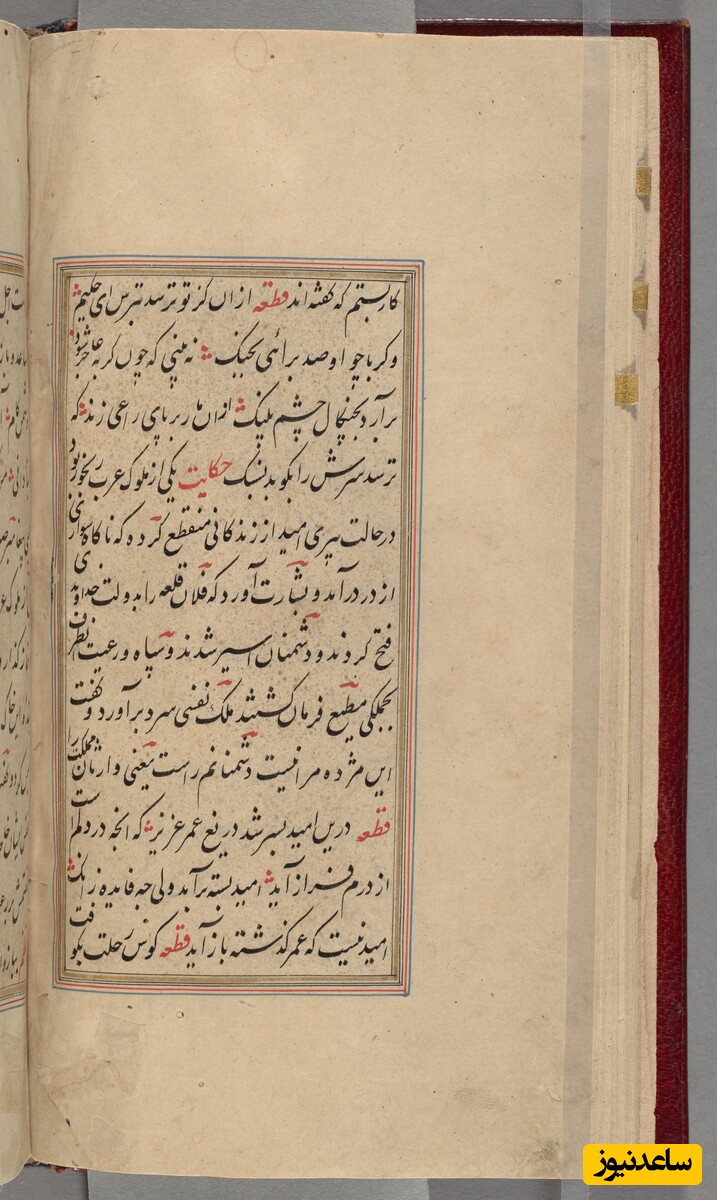 کار بستم که گفته اند قطعه ازان کز تو ترسد بترس ای حکیم
وکر با چو او صد برائی بجنک نه بینی که چون کربه عاجز شود
برآرد بچنکال چشم پلنک ازان مار بر پای راعی زند که
ترسد سرش را بکوبد بسنک حکایت یکی از ملوک عرب رنجور بود
در حالت پیری امید از زندکانی منقطع کرده که ناکاه سواری
از در درآمد و بشارت آورد که فلان قلعه را بدولت خداوندی
فتح کردند و دشمنان اسیر شدند و سپاه و رعیت آنطرف
بجملکی مطیع فرمان کشتند ملک نفسی سرد برآورد و کفت
این مژده مرا نیست دشمنانم راست یعنی وارثان مملکت را
قطعه درین امید بسر شد دریغ عمر عزیز که انچه در دلم است
از درم فراز آید امید بسته برآمد ولی چه فایده زانک
امید نیست که عمر کذشته باز آید قطعه کوس رحلت بکوفت
ساعدنیوز